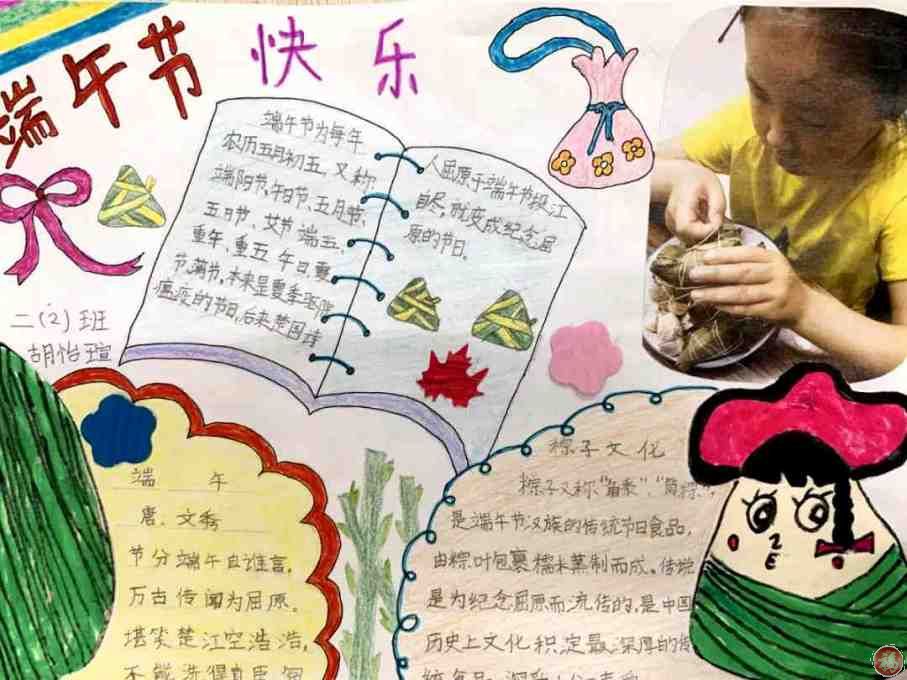 端午节 快乐
端午节为每年
农历五月初五,又称
端阳节、午日节、五月节、
五日节、艾节、端五、
重午、午日、夏
节,本来是夏季驱除
瘟疫的节日,后来楚国诗
人屈原于端午节投江
自尽,就变成纪念屈
原的节日。
二(2)班
胡怡瑄
端 午
唐、文秀
节分端午自谁言,
万古传闻为屈原。
堪笑楚江空浩浩,
不能洗得直臣冤
粽子文化
粽子又称"角黍"、"筒粽",
是端午节汉族的传统节日食品,
由粽叶包裹糯米蒸制而成。传说
是为纪念屈原而流传的,是中国
历史上文化积淀最深厚的传
统食品